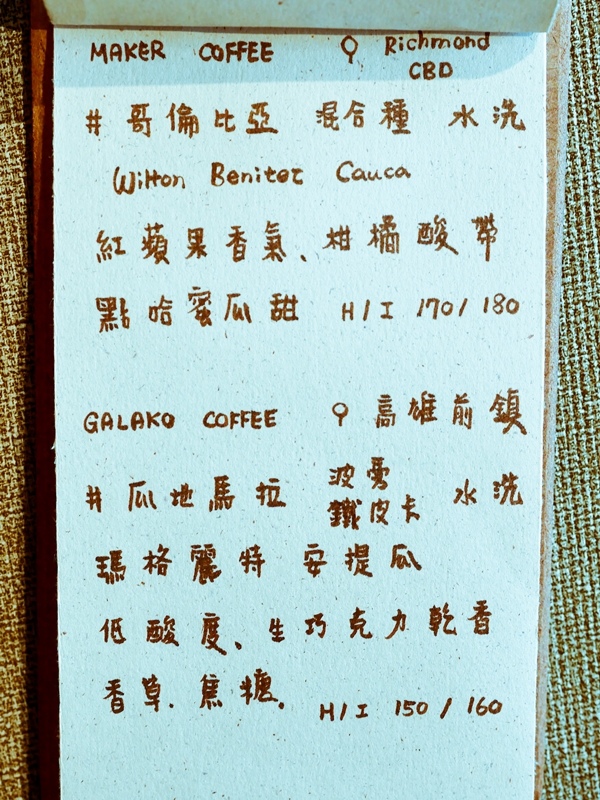 MAKER COFFEE Richmond
CBD
# 哥倫比亞 混合種 水洗
Wilton Benitez Cauca
紅蘋果香氣、柑橘酸帶
點哈蜜瓜甜 H/I 170/180
GALAKO COFFEE 高雄前鎮
# 瓜地馬拉 波旁 水洗
鐵皮卡
瑪格麗特 安提瓜
低酸度、生巧克力乾香
香草.焦糖.
H/I 150/160